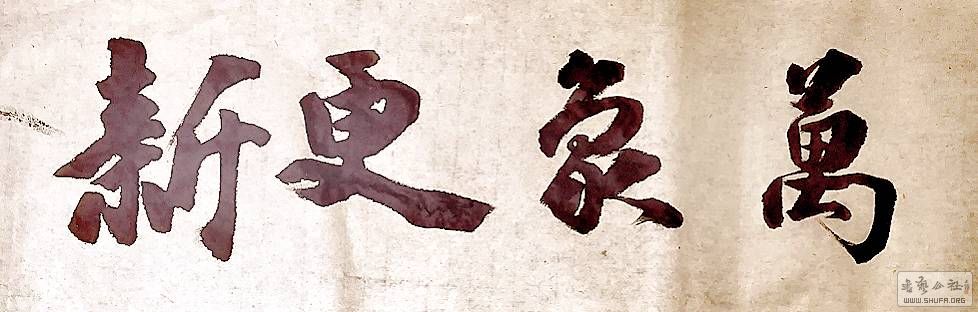 萬象更新
书艺公社
WWW.SHUFA.ORG